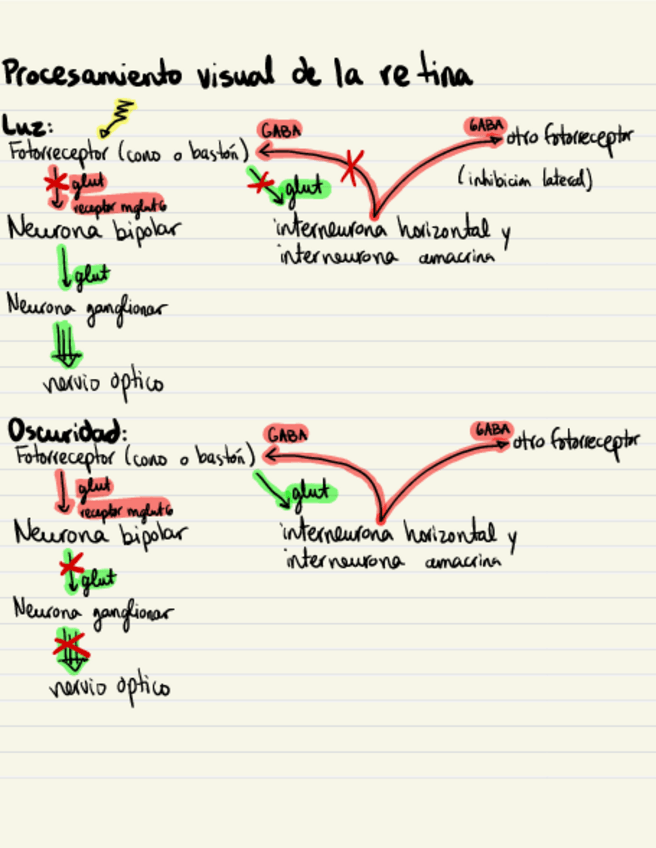 Procesamiento visual de la retina
Luz:
GABA
GABA
otro fotorreceptor
Fotorreceptor (cono o bastón)
(inhibición lateral)
glut
glut
receptor mglut6
Neurona bipolar
interneurona horizontal y
interneurona amacrina
glut
Neurona ganglionar
nervio optico
Oscuridad:
GABA
GABA
otro fotorreceptor
Fotorreceptor (cono o bastón)
glut
glut
receptor mglut6
Neurona bipolar
interneurona horizontal y
interneurona amacrina
glut
Neurona ganglionar
nervio optico